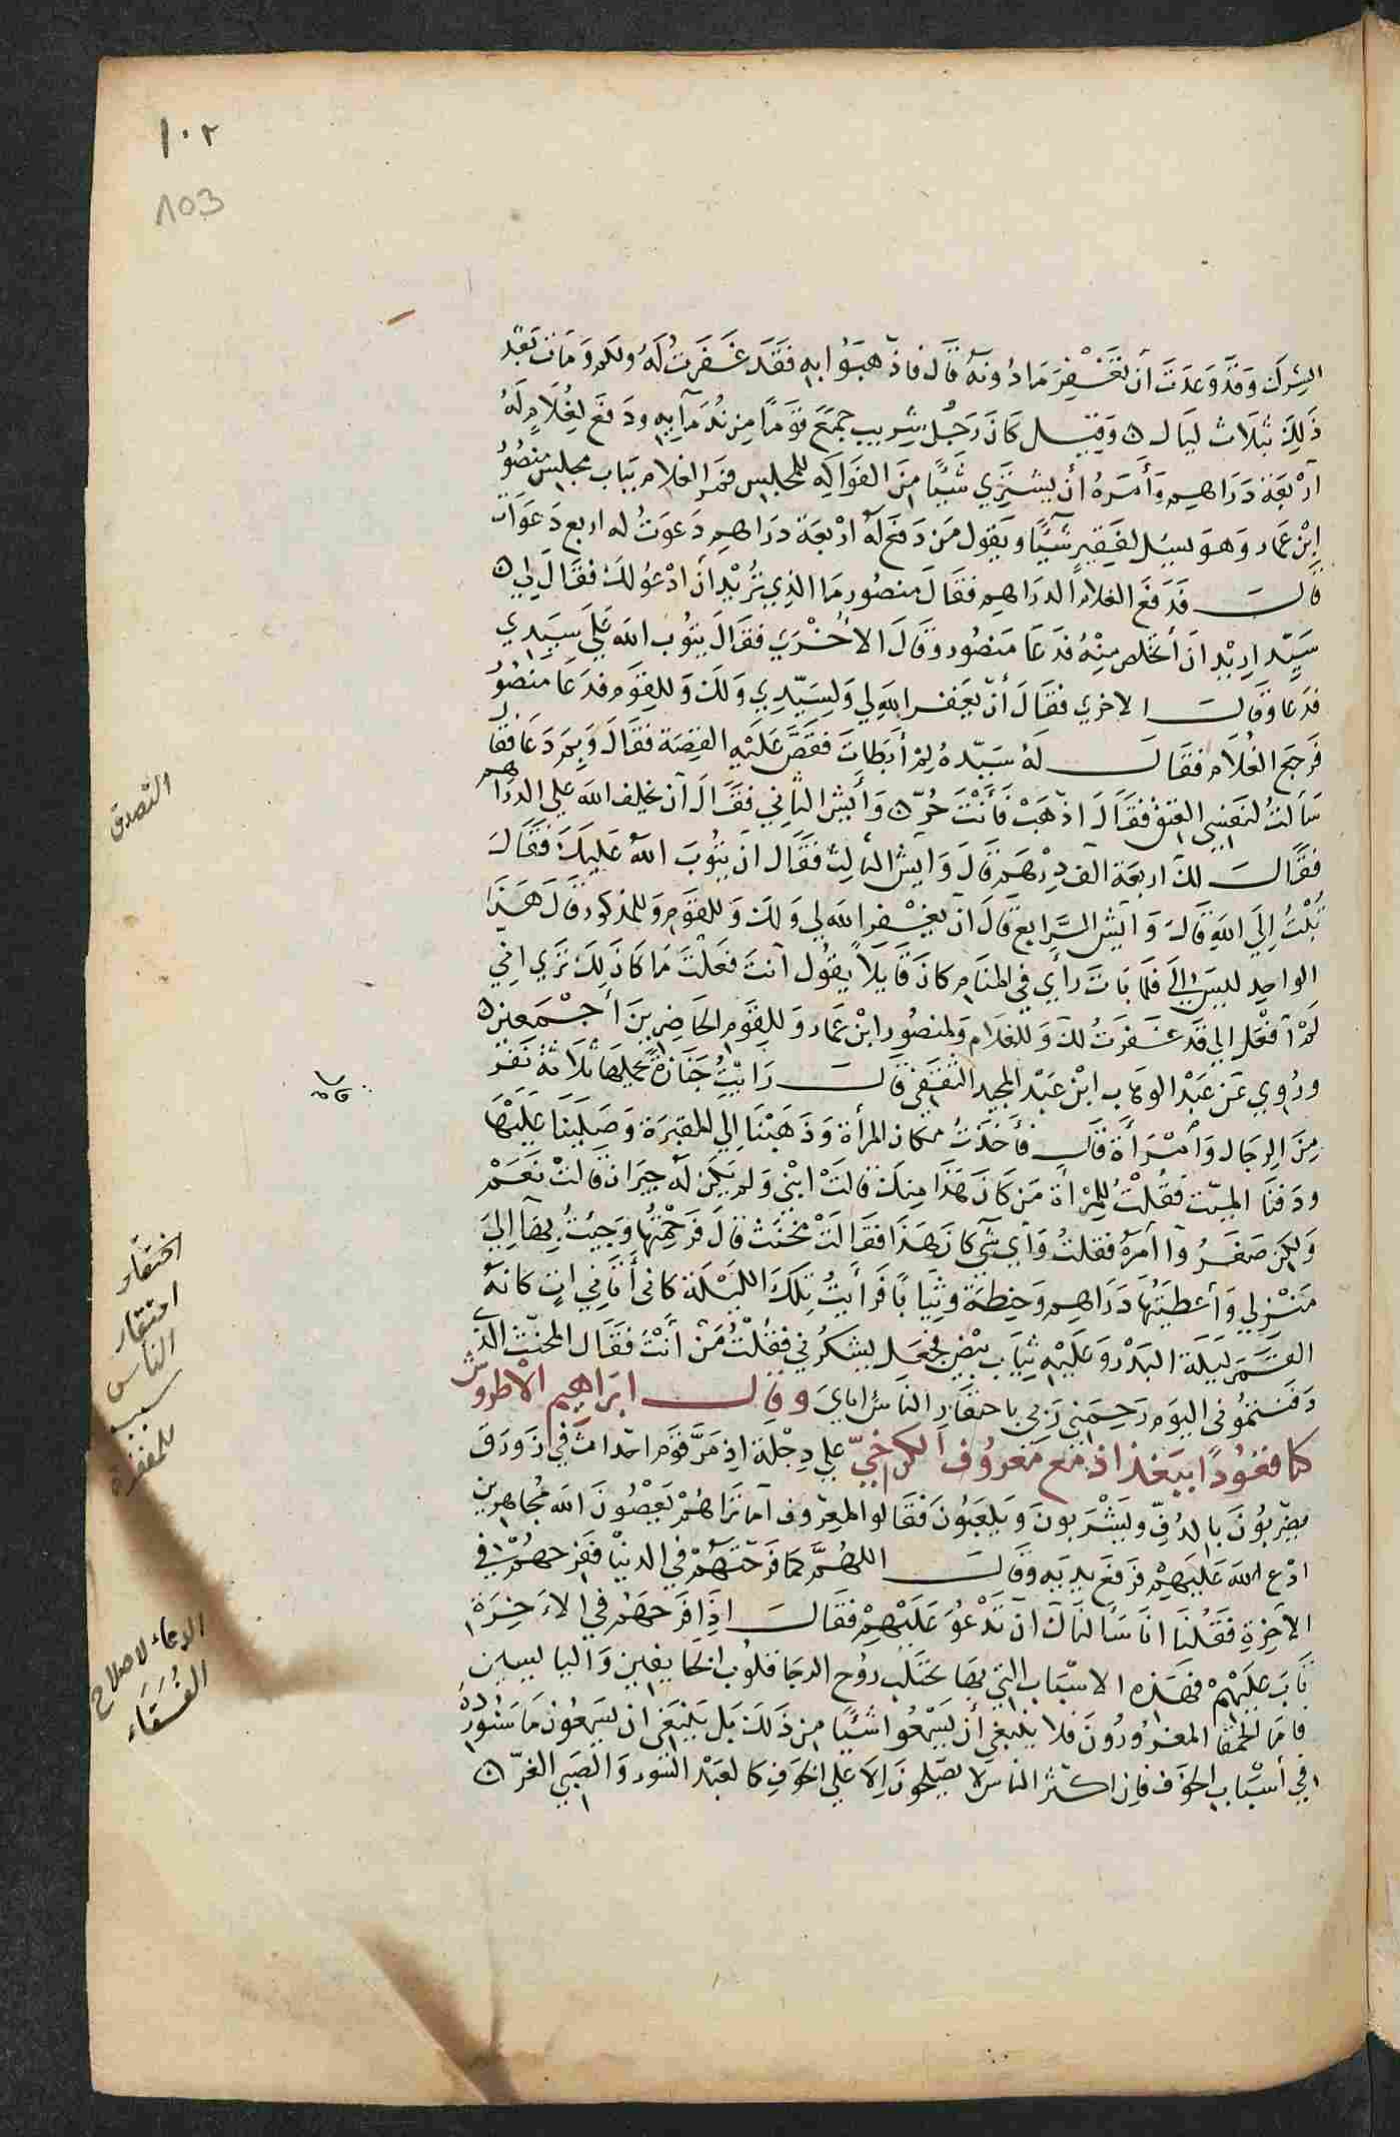 ١٠٢
103
الشرك وقد وعدت أن تغفر ما دونه قال فاذهبوا به فقد غفرت له ولكم ومات بعد
ذلك بثلاث ليال ۞ وقيل كان رجل شريب جمع قومًا من ندمآيه ودفع لغلام له
أربعة دراهم وأمره أن يشتري شيًا من الفواكه للمجلس فمر الغلام بباب مجلس منصور
ابن عمار وهو يسيل لفقير شيًا ويقول من دفع له اربعة دراهم دعوت له اربع دعوات
قالـــ فدفع الغلام الدراهم فقال منصور ما الذي تريد أن ادعو لك فقال لي ۞
سيد اريد ان أتخلص منه فدعا منصور وقال الأخرى فقال يتوب الله علي سيدي
فدعا وقالـــ الاخري فقال أن يغفر الله لي ولسيدي ولك وللقوم فدعا منصور
فرجع الغلام فقالـــ له سيده لم أبطات فقص عليه القصة فقال وبم دعا فقا
سألت لنفسي العتق فقال اذهب فأنت حر ۞ وأيش الثاني فقال أن يخلف الله علي الدراهم
فقالـــ لك اربعة آلف درهم قال وايش الثالث فقال ان يتوب الله عليك فقال
تبت إلي الله قال وايش الرابع قال ان يغفر الله لي ولك وللقوم وللمذكور قال هذا
الواحد ليس إلي فلما بات رأي في المنام كان قايلا يقول أنت فعلت ما كان لك تري اني
لم أفعل الي قد غفرت لك وللغلام ولمنصور ابن عمار وللقوم الحاضرين أجمعين ۞
وروي عن عبد الوهاب ابن عبد المجيد الثقفي قالـــ رايت جنازة يحملها ثلاثة نفر
من الرجال وامرأة قالـــ فأخذت مكان المرأة وذهبنا إلي المقبرة وصلينا عليها
ودفنا الميت فقلت للمرأة من كان هذا منك قالت ابني ولم يكن له جيران قالت نعم
ولكن صغروا أمره فقلت وأي شي كان هذا فقالت مخنث قال فرحمتها وجيت بها إلي
منزلي وأعطيتها دراهم وحنطة وثيابًا فرأيت تلك الليلة كاني أتاني ات كانه
القمر ليلة البدر وعليه ثياب بيض فجعل يشكرني فقلت من أنت فقال المخنث الذي
دفنتموني اليوم رحمني ربي باحتقار الناس اياي وقالـــ ابراهيم الاطروش
كنا قعودًا ببغداذ مع معروف الكرخي علي دجلة اذ مر قوم احداث في زورق
يضربون بالدف ويشربون ويلعبون فقالو المعروف اما تراهم يعصون الله مجاهرين
ادع الله عليهم فرفع يديه وقالـــ اللهم كما فرحتهم في الدنيا ففرحهم في
الآخرة فقلنا انا سألناك ان تدعو عليهم فقالـــ اذا فرحهم في الاخرة
تاب عليهم فهذه الاسباب التي بها تجتلب روح الرجا قلوب الخايفين واليايسين
فاما الحمقا المغرورون فلا ينبغي أن يسمعوا شيًا من ذلك بل ينبغي ان يسمعون ما سنورده
في أسباب الخوف فان اكثر الناس لا يصلحون إلا علي الخوف كالعبد السوء والصبي الغر ۞
التصدق
احتقار
احتقار
الناس
سبب
للمغفرة
الدعاء لاصلاح
الفسقاء